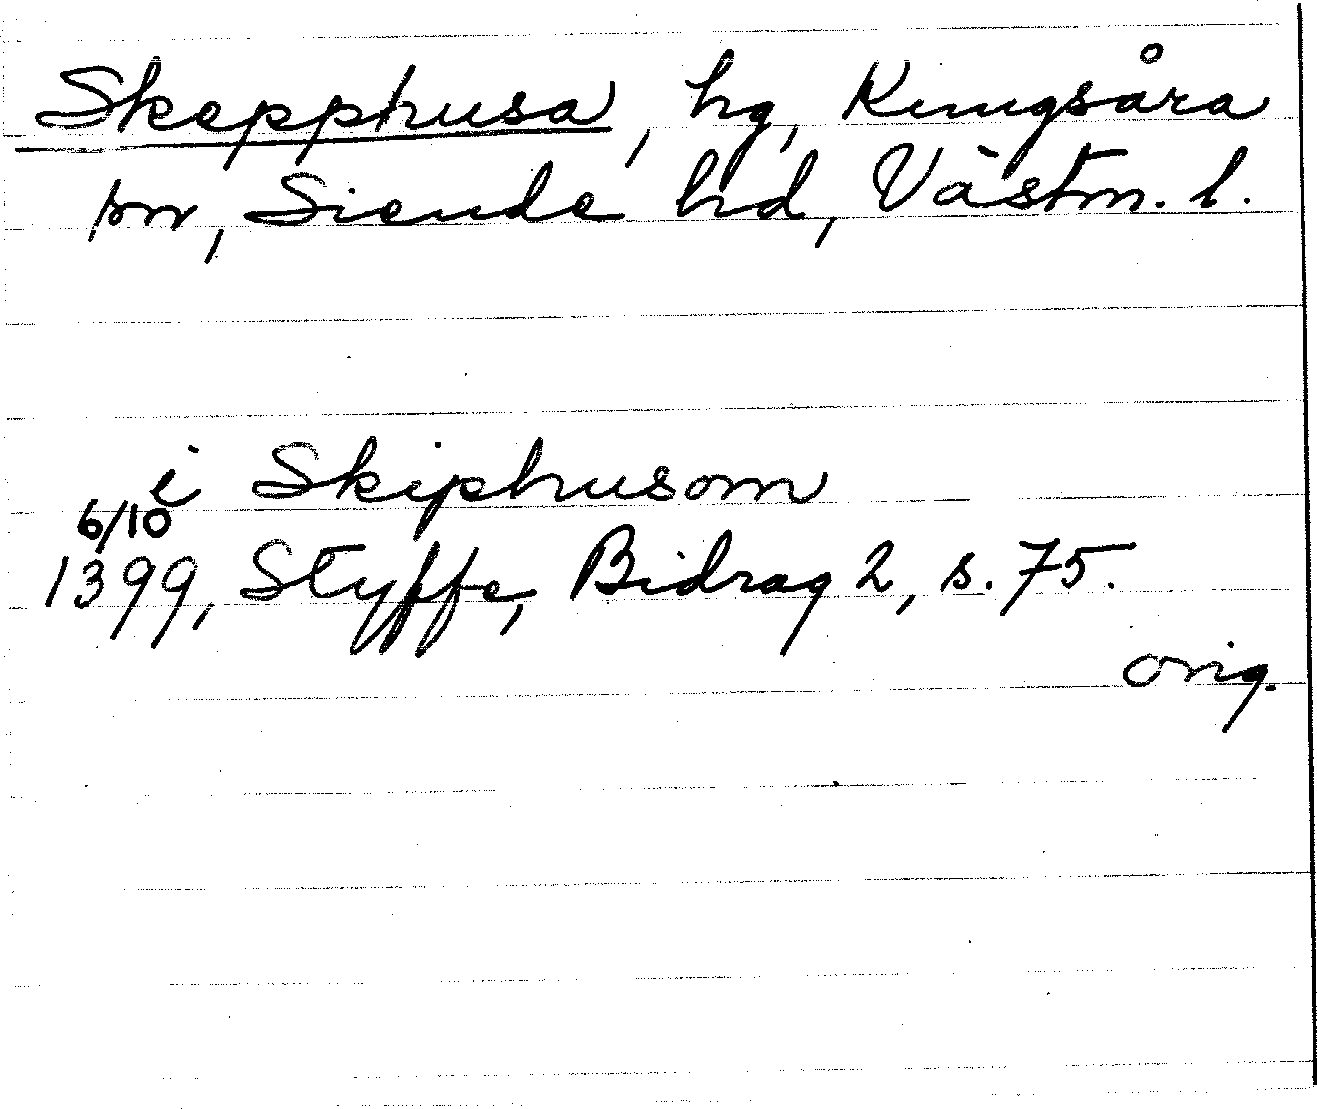 Skepphusa, hg, Kungsåra
sn, Siende hd, Västm. l.
i Skiphusom
6/10
1399, Styffe, Bidrag 2, s. 75.
orig.